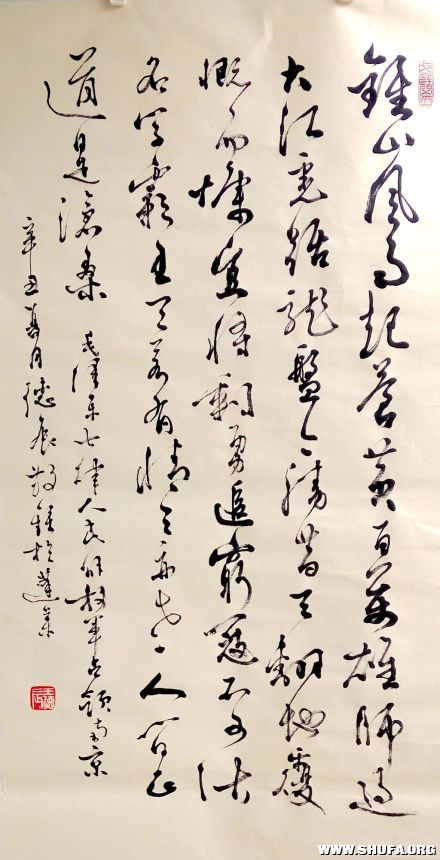 鍾山風雨起蒼黄百萬雄師過
大江虎踞龍盤今勝昔天翻地覆
慨而慷宜將剩勇追窮寇不可沽
名學霸王天若有情天亦老人間正
道是滄桑 毛澤東七律人民解放軍占領南京
辛丑夏月德辰敬録於蓬莱
WWW.SHUFA.ORG